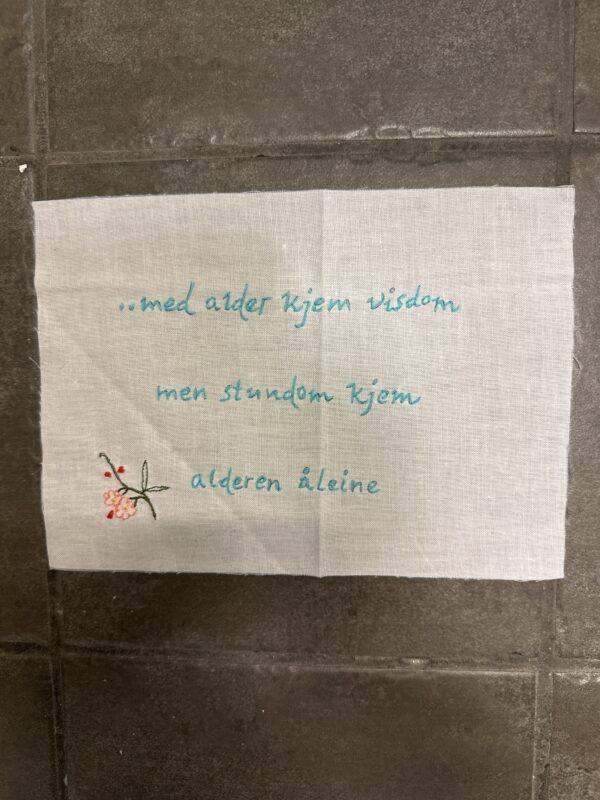 ..med alder kjem visdom
men stundom kjem
alderen åleine